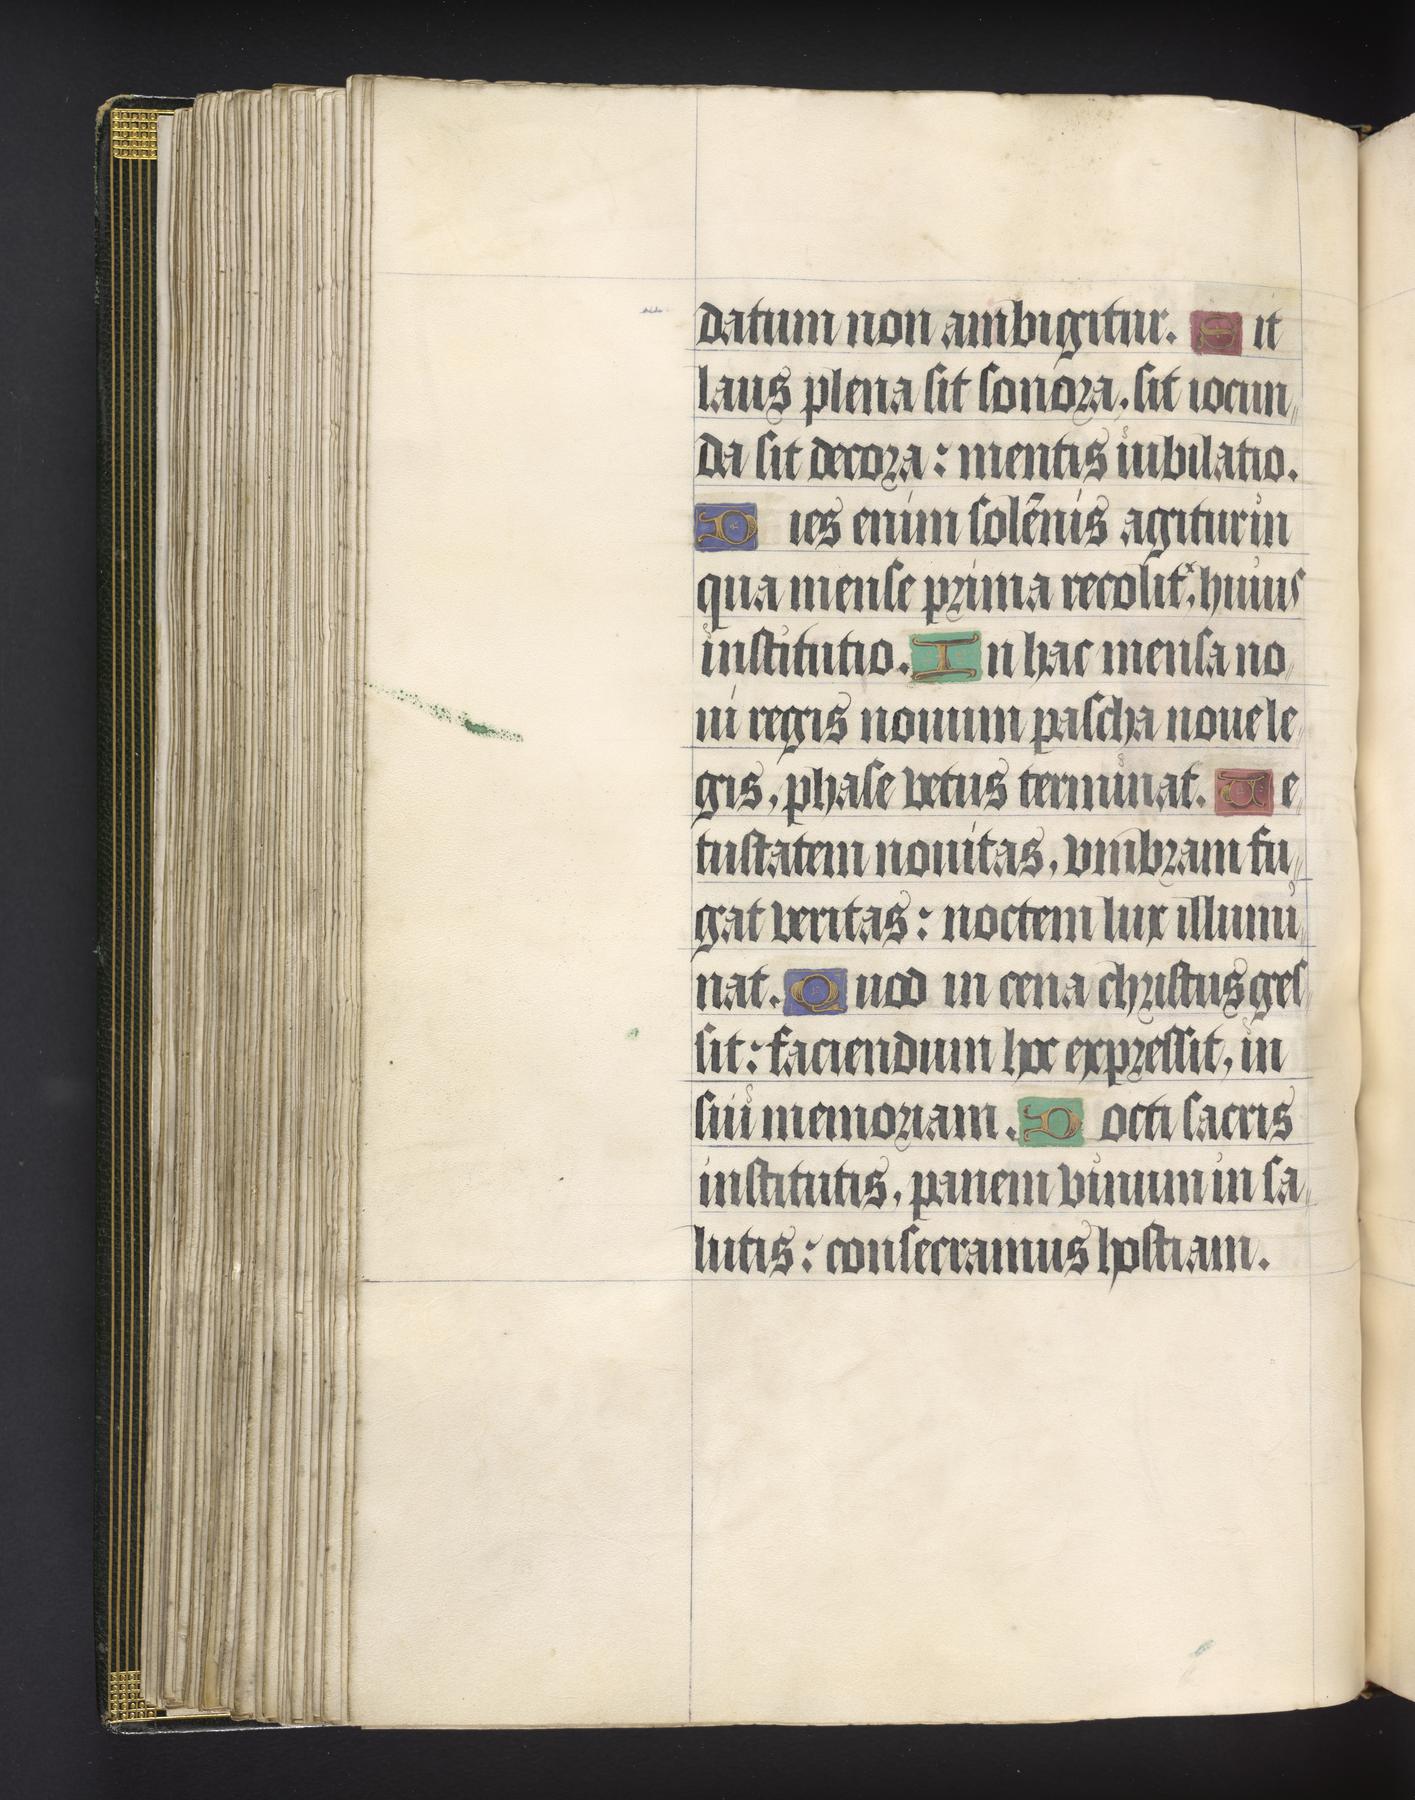 datum non ambigitur. Sit
laus plena sit sonora, sit iocun⸗
da sit decora: mentis iubilatio.
Dies enim solēnis agitur in
qua mense prima recolitr, huius
institutio. In hac mensa no⸗
ui regis nouum pascha noue le⸗
gis, phase vetus terminat. Ve⸗
tustatem nouitas, vmbram fu⸗
gat veritas: noctem lux illumi⸗
nat. Quod in cena christus ges
sit: faciendum hoc expressit, in
sui memoriam. Docti sacris
institutis, panem vinum in sa⸗
lutis: consecramus hostiam.